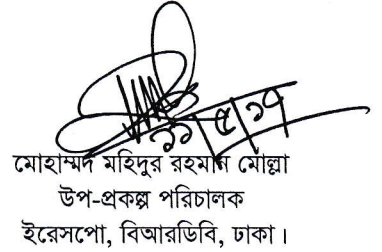 ২২/৫/১৭
মোহাম্মদ মহিদুর রহমান মোল্লা
উপ-প্রকল্প পরিচালক
ইরেসপো, বিআরডিবি, ঢাকা।